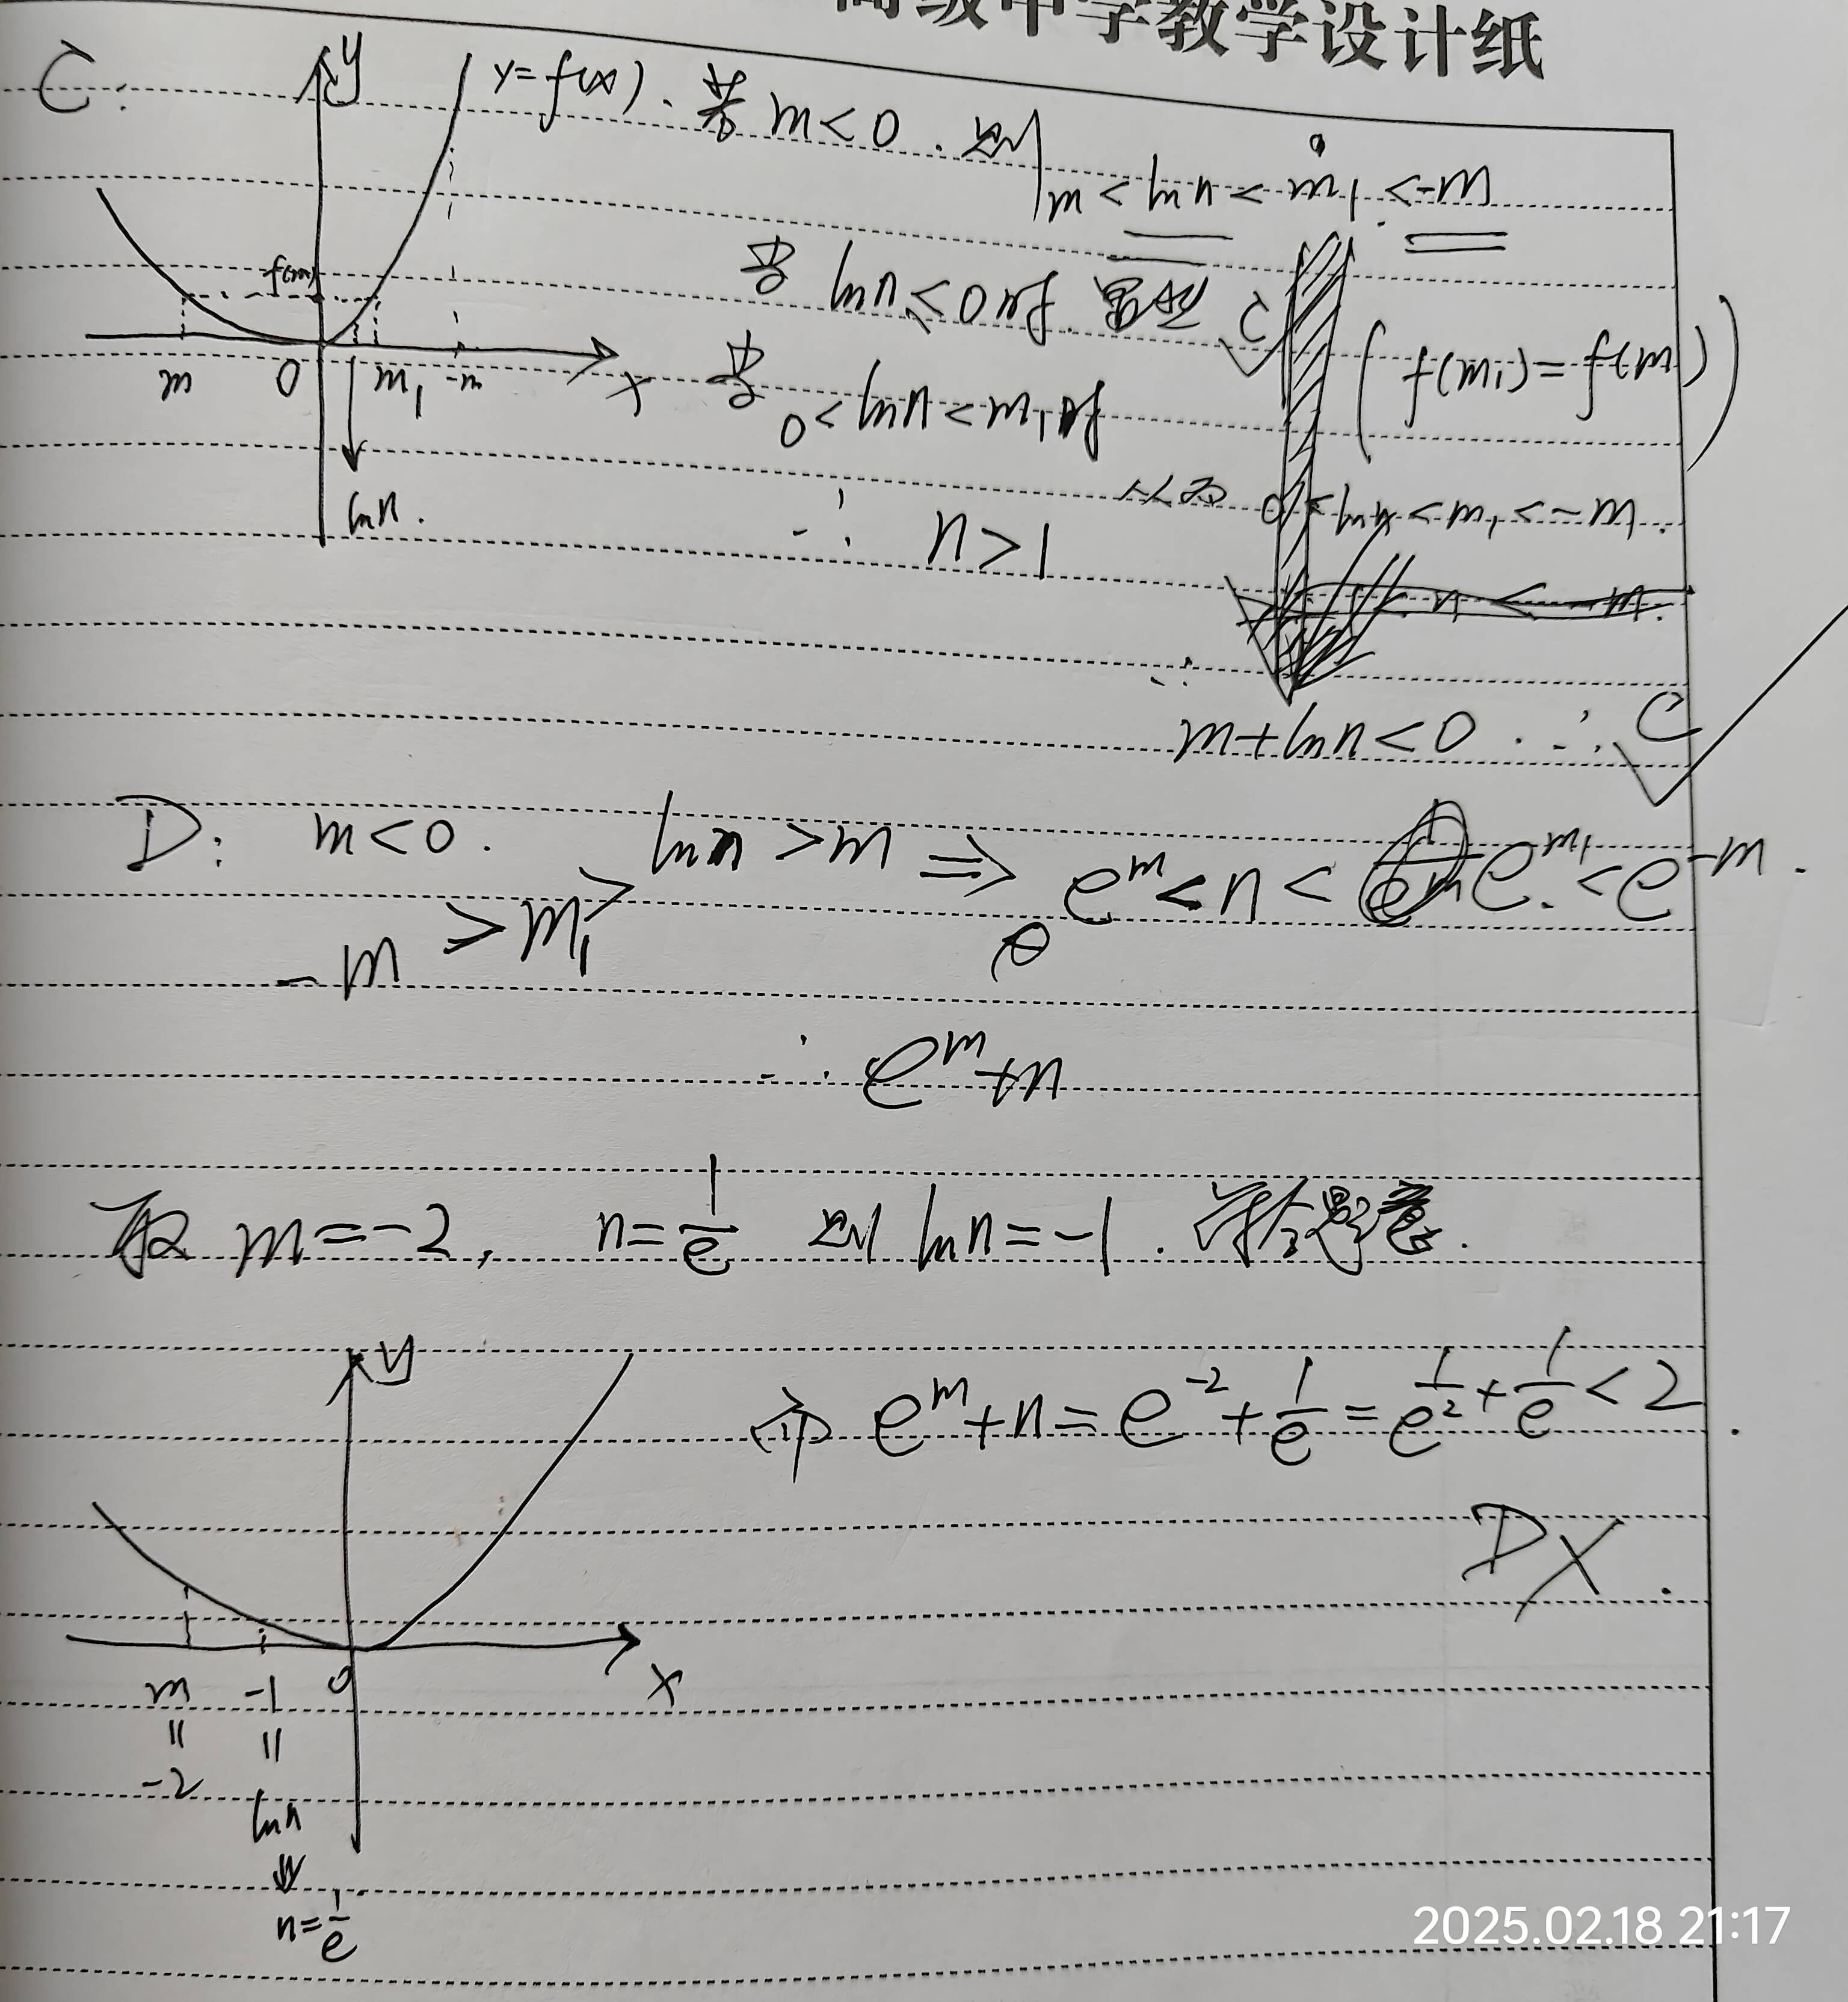 高级中学教学设计纸
C:
y
y=f(x). 若 m<0. 则
m < ln n < m₁ < -m
f(m)
当 ln n ≤ 0 时. 显然 C√
(f(m₁)=f(m))
m 0 m₁ -m x
当 0 < ln n < m₁ 时
ln n.
从而 0 < ln n < m₁ < -m.
∴ n>1
∴ m+ln n<0. ∴ C√
D: m<0. ln n >m ⇒ eᵐ < n < e^m₁ < e^-m.
-m > m₁ >
e
∴ eᵐ+n
取 m=-2, n=1/e 则 ln n=-1. 符合题意.
y
而 eᵐ+n=e⁻²+1/e=1/e²+1/e<2
D×.
m -1 0 x
|| ||
-2 ln n
⇓
n=1/e
2025.02.18 21:17